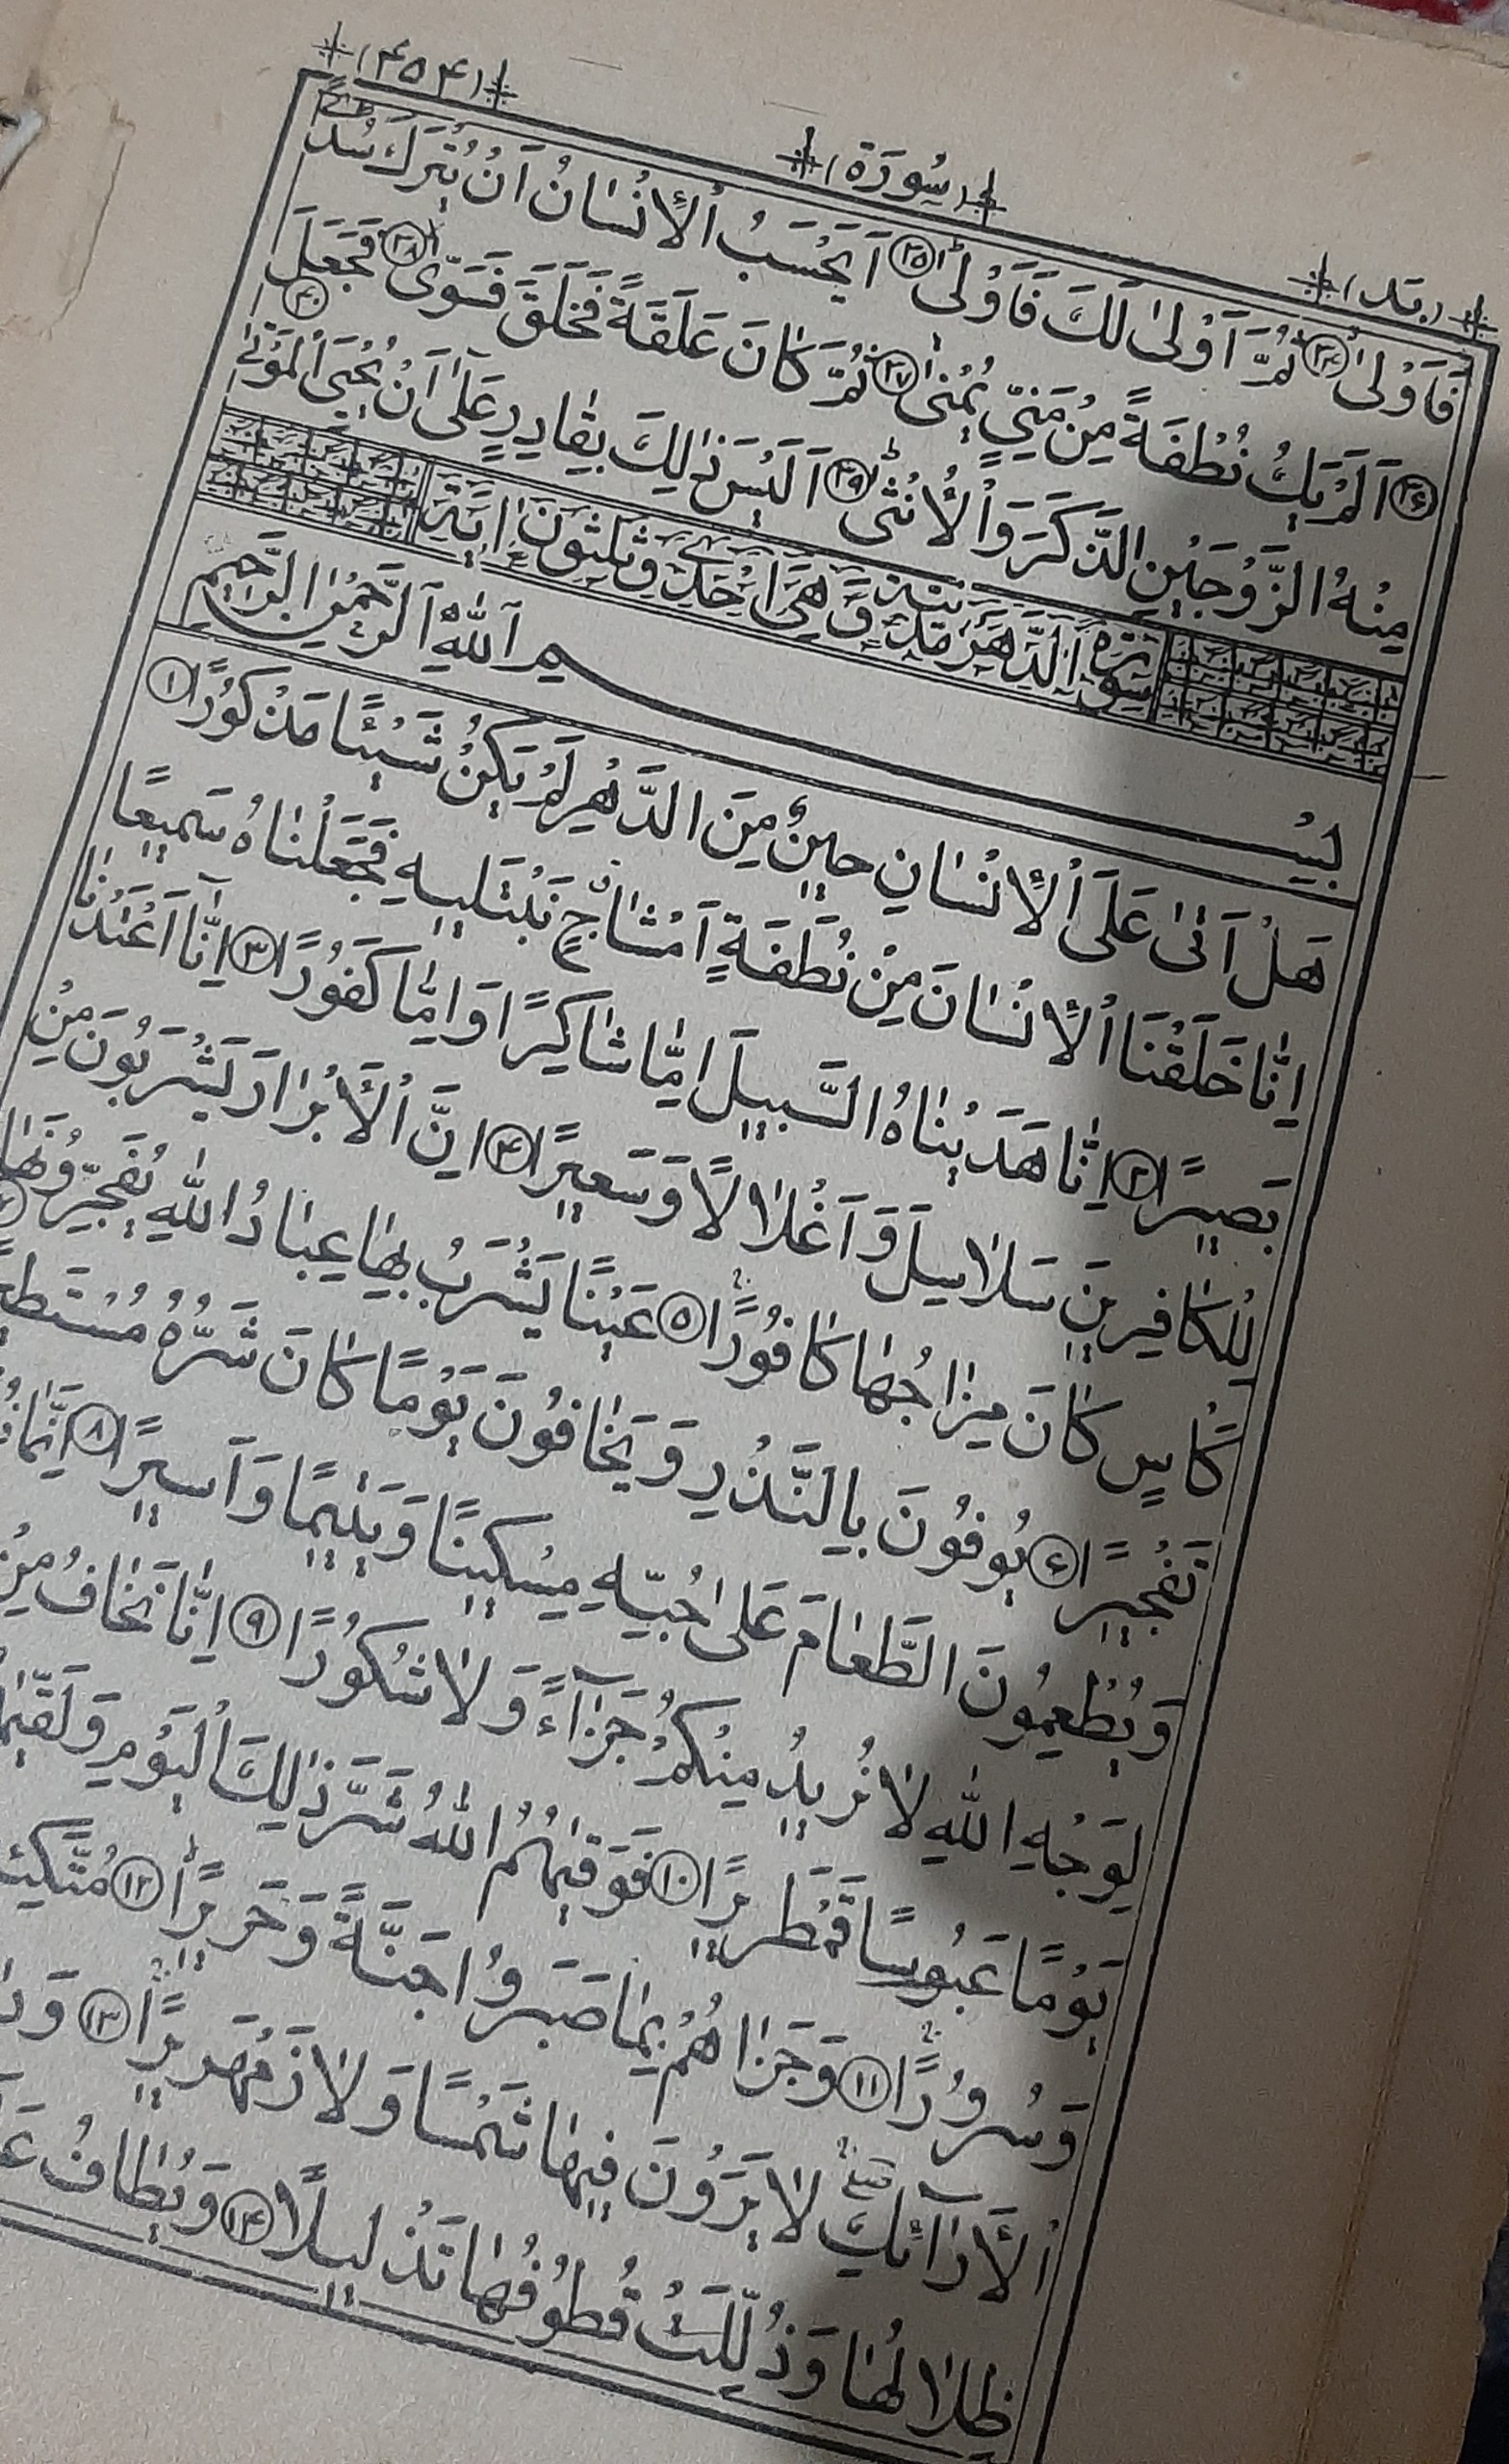 (بقد) (سُورَة) (۴۵۴)
فَاَوْلىٰ ۳۴ ثُمَّ اَوْلىٰ لَكَ فَاَوْلىٰ ۳۵ اَيَحْسَبُ الْاِنْسٰانُ اَنْ يُتْرَكَ سُدىً
۳۶ اَلَمْ يَكُ نُطْفَةً مِنْ مَنِيٍّ يُمْنىٰ ۳۷ ثُمَّ كٰانَ عَلَقَةً فَخَلَقَ فَسَوّٰى ۳۸ فَجَعَلَ
مِنْهُ الزَّوْجَيْنِ الذَّكَرَ وَالْاُنْثىٰ ۳۹ اَلَيْسَ ذٰلِكَ بِقٰادِرٍ عَلىٰ اَنْ يُحْيِيَ الْمَوْتىٰ ۴۰
سُورَةُ الدَّهْرِ مَدَنِيَّةٌ وَّهِىَ اِحْدٰى وَثَلٰثُوْنَ اٰيَةً
بِسْمِ اللّٰهِ الرَّحْمٰنِ الرَّحِيْمِ
هَلْ اَتىٰ عَلَى الْاِنْسٰانِ حِينٌ مِنَ الدَّهْرِ لَمْ يَكُنْ شَيْئًا مَذْكُورًا ۱
اِنّٰا خَلَقْنَا الْاِنْسٰانَ مِنْ نُطْفَةٍ اَمْشٰاجٍ نَبْتَلِيهِ فَجَعَلْنٰاهُ سَمِيعًا
بَصِيرًا ۲ اِنّٰا هَدَيْنٰاهُ السَّبِيلَ اِمّٰا شٰاكِرًا وَاِمّٰا كَفُورًا ۳ اِنّٰا اَعْتَدْنٰا
لِلْكٰافِرِينَ سَلٰاسِلَ وَاَغْلٰالًا وَسَعِيرًا ۴ اِنَّ الْاَبْرٰارَ يَشْرَبُونَ مِنْ
كَاْسٍ كٰانَ مِزٰاجُهٰا كٰافُورًا ۵ عَيْنًا يَشْرَبُ بِهٰا عِبٰادُ اللّٰهِ يُفَجِّرُونَهٰا
تَفْجِيرًا ۶ يُوفُونَ بِالنَّذْرِ وَيَخٰافُونَ يَوْمًا كٰانَ شَرُّهُ مُسْتَطِيرًا ۷
وَيُطْعِمُونَ الطَّعٰامَ عَلىٰ حُبِّهِ مِسْكِينًا وَيَتِيمًا وَاَسِيرًا ۸ اِنَّمٰا
لِوَجْهِ اللّٰهِ لٰا نُرِيدُ مِنْكُمْ جَزٰآءً وَلٰا شُكُورًا ۹ اِنّٰا نَخٰافُ مِنْ
يَوْمًا عَبُوسًا قَمْطَرِيرًا ۱۰ فَوَقٰيهُمُ اللّٰهُ شَرَّ ذٰلِكَ الْيَوْمِ وَلَقّٰيهُمْ
وَسُرُورًا ۱۱ وَجَزٰاهُمْ بِمٰا صَبَرُوا جَنَّةً وَحَرِيرًا ۱۲
الْاَرٰآئِكِ لٰا يَرَوْنَ فِيهٰا شَمْسًا وَلٰا زَمْهَرِيرًا ۱۳
ظِلٰالُهٰا وَذُلِّلَتْ قُطُوفُهٰا تَذْلِيلًا ۱۴ وَيُطٰافُ